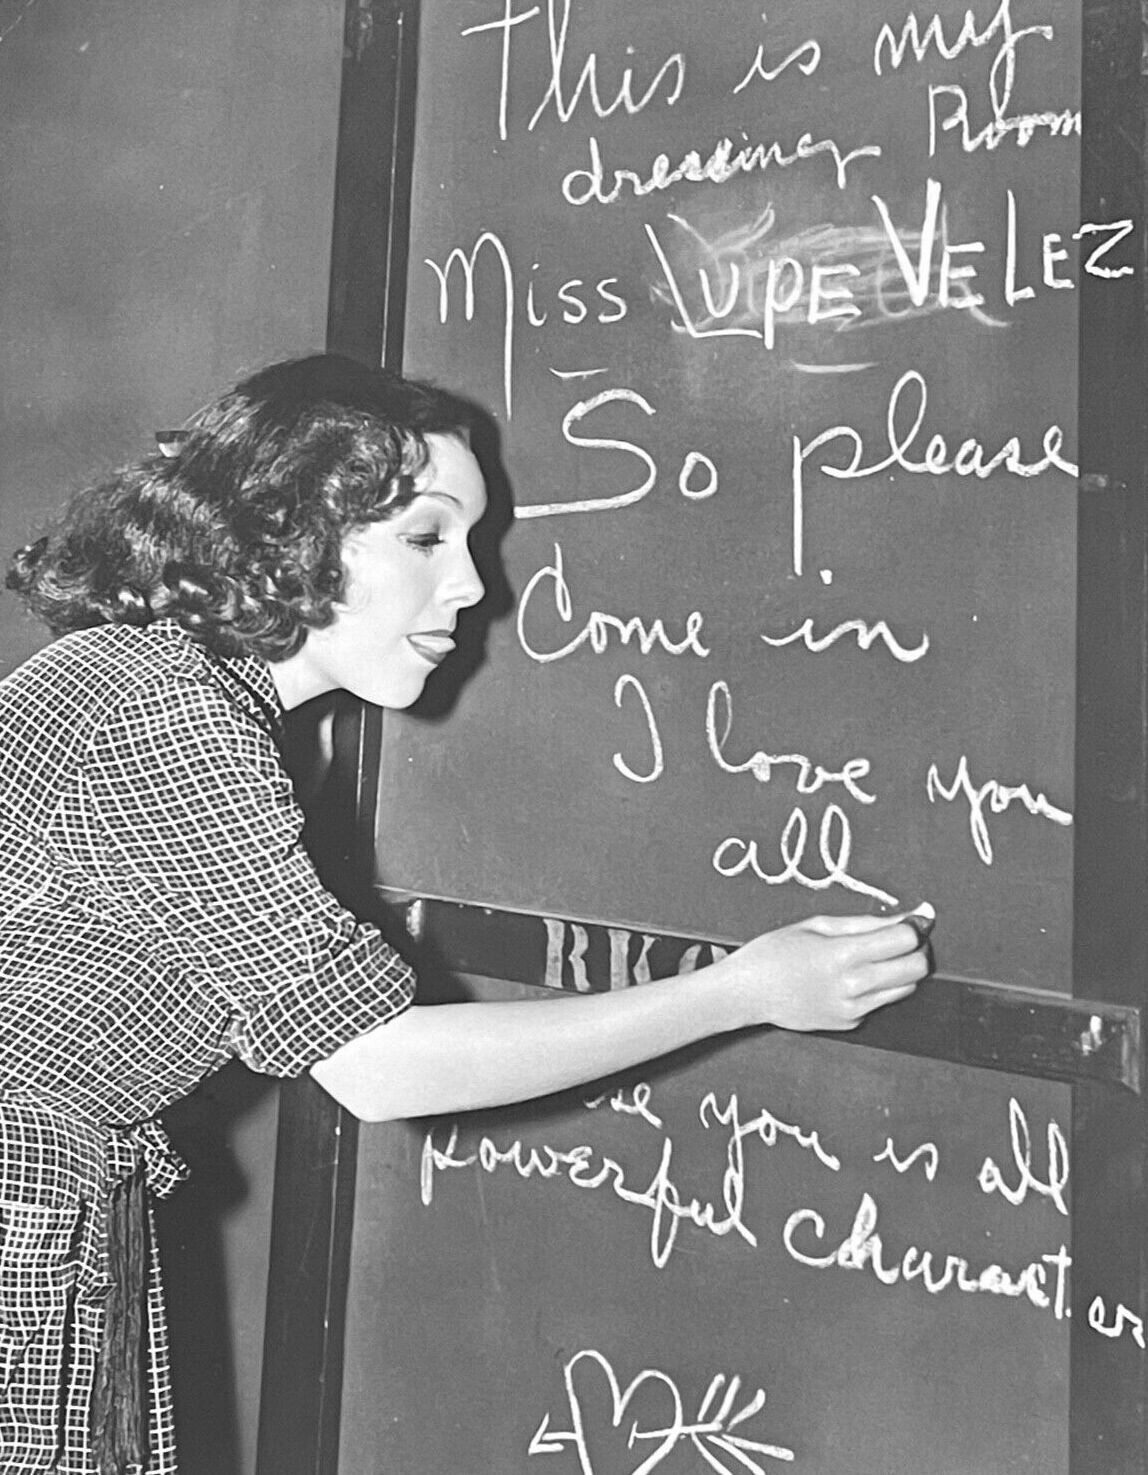 This is my
dressing Room
Miss LUPE VELEZ
So please
Come in
I love you
all
RKO
you is all
powerful character